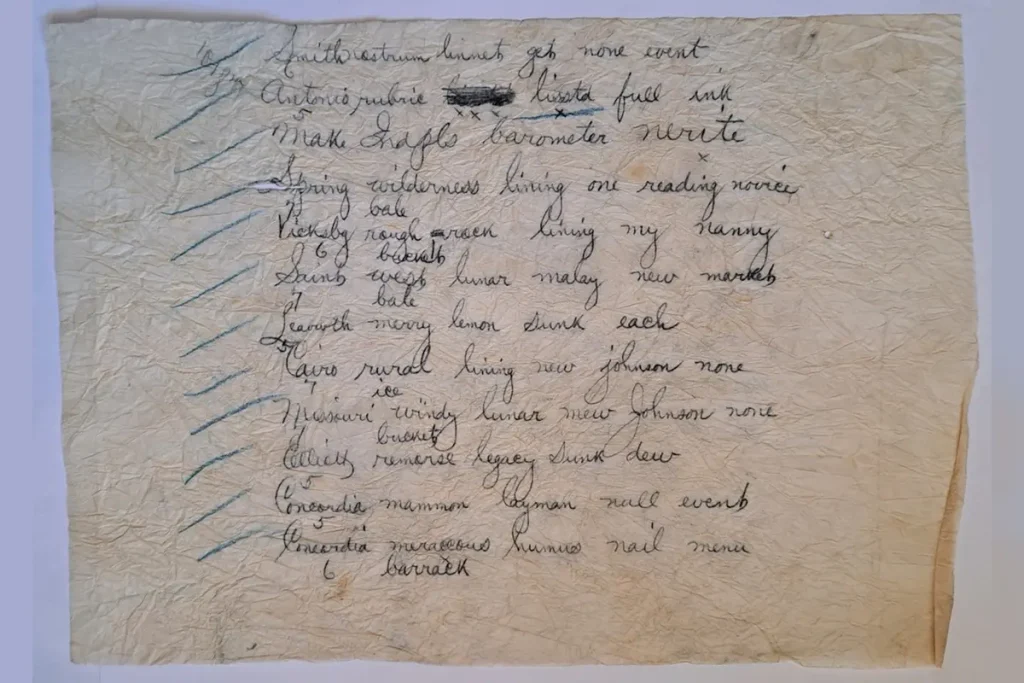 Smith nostrum linnet get none event
Antonio rubric lissta full ink
x x x x
5
Make Indpls barometer nerite
x
Spring wilderness lining one reading novice
bale
Vicksbg rough rack lining my nanny
6 bucket
Saint west lunar malay new market
7 bale
Leavwth merry lemon sunk each
5
Cairo rural lining new johnson none
7 ice
Missouri windy lunar mew Johnson none
bucket
Celliet remorse legacy sunk dew
5
Concordia mammon layman null event
5
Concordia meraccous humus nail menu
6 barrack